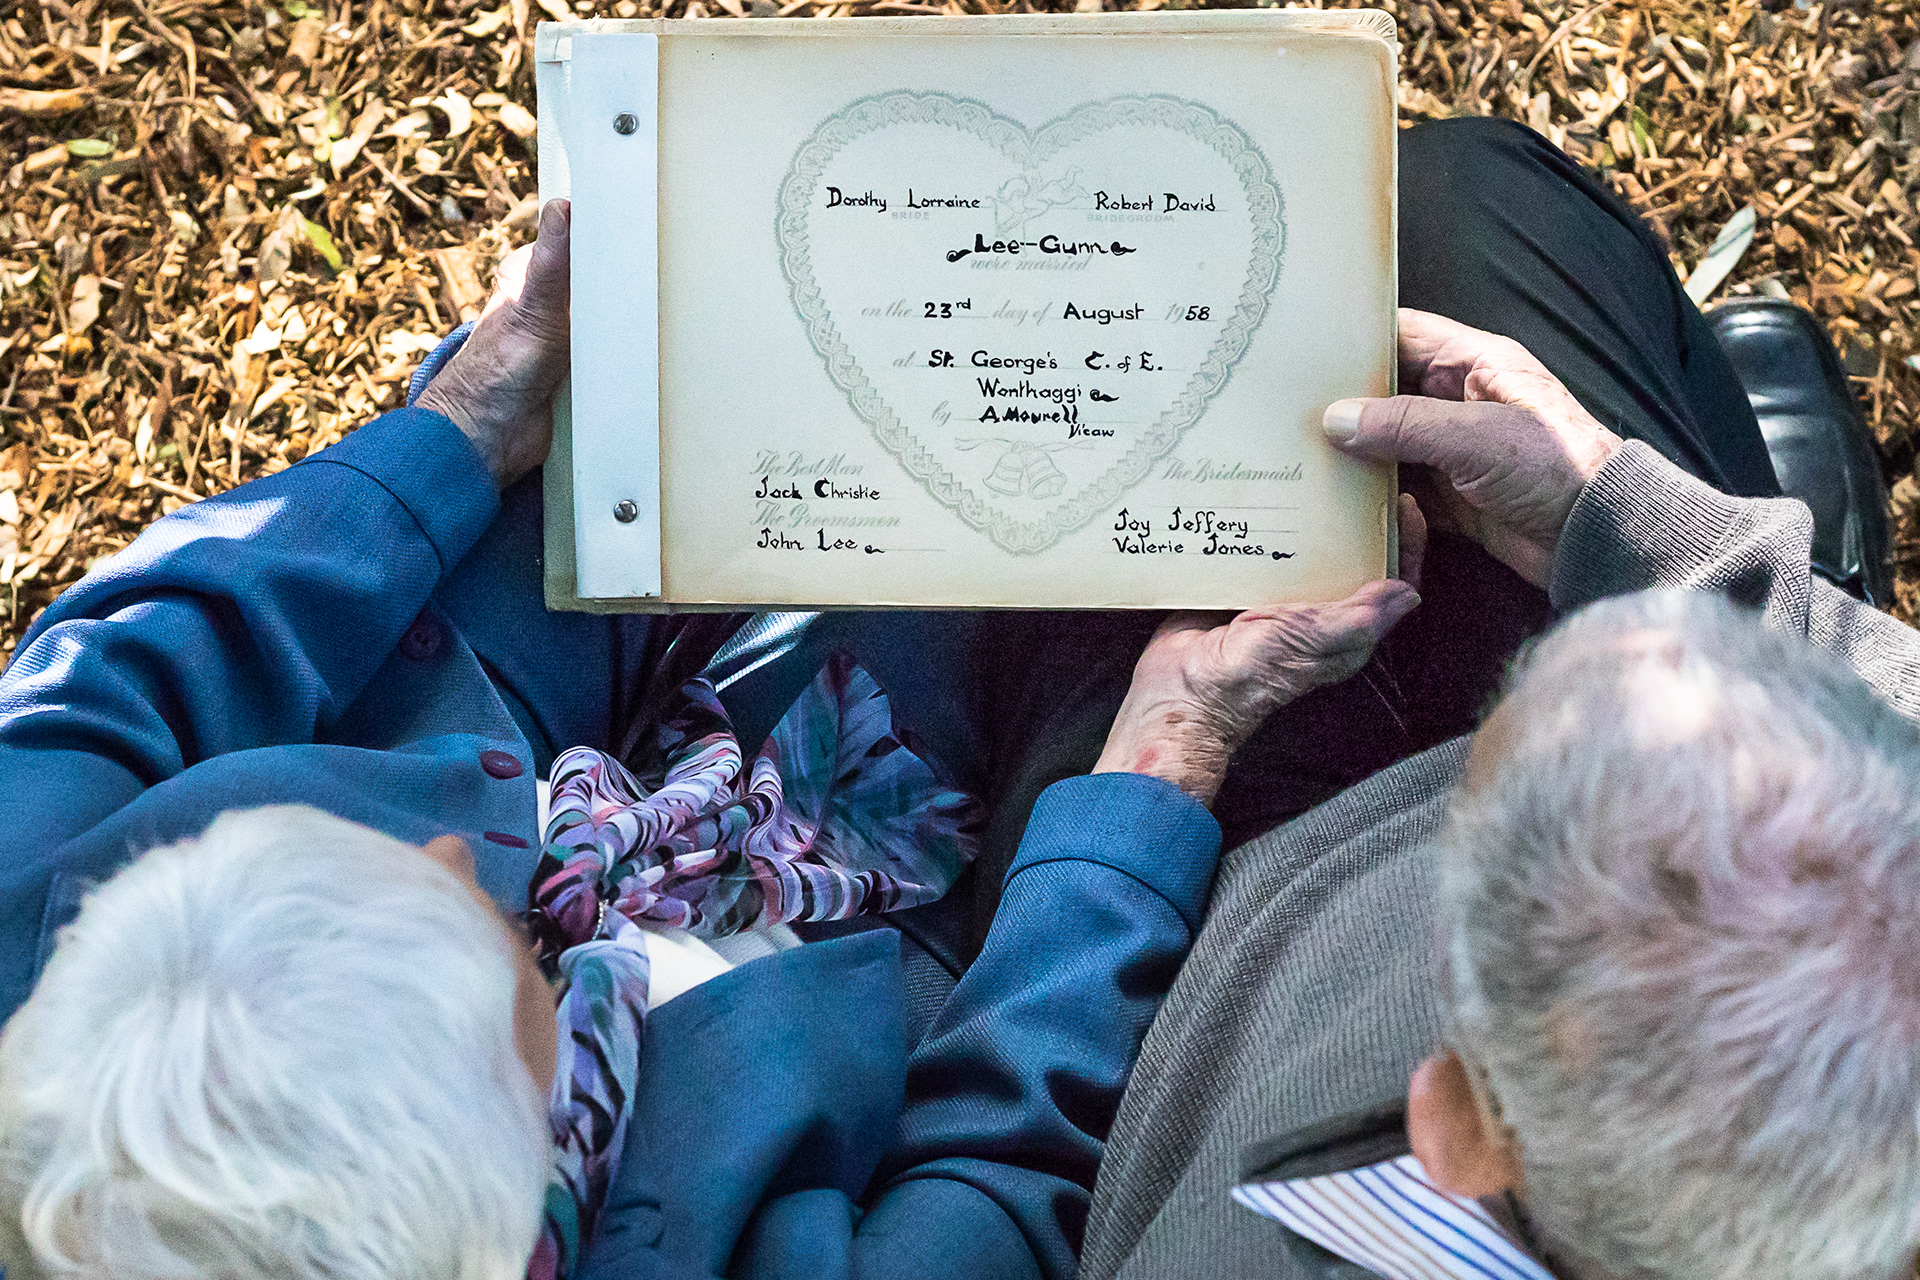 Dorothy Lorraine Robert David
BRIDE BRIDEGROOM
Lee-Gunn
were married
on the 23rd day of August 1958
at St. George's C. of E.
Wonthaggi
by A. Mourell
Vicar
The Best Man
Jack Christie
The Groomsmen
John Lee
The Bridesmaids
Joy Jeffery
Valerie Jones